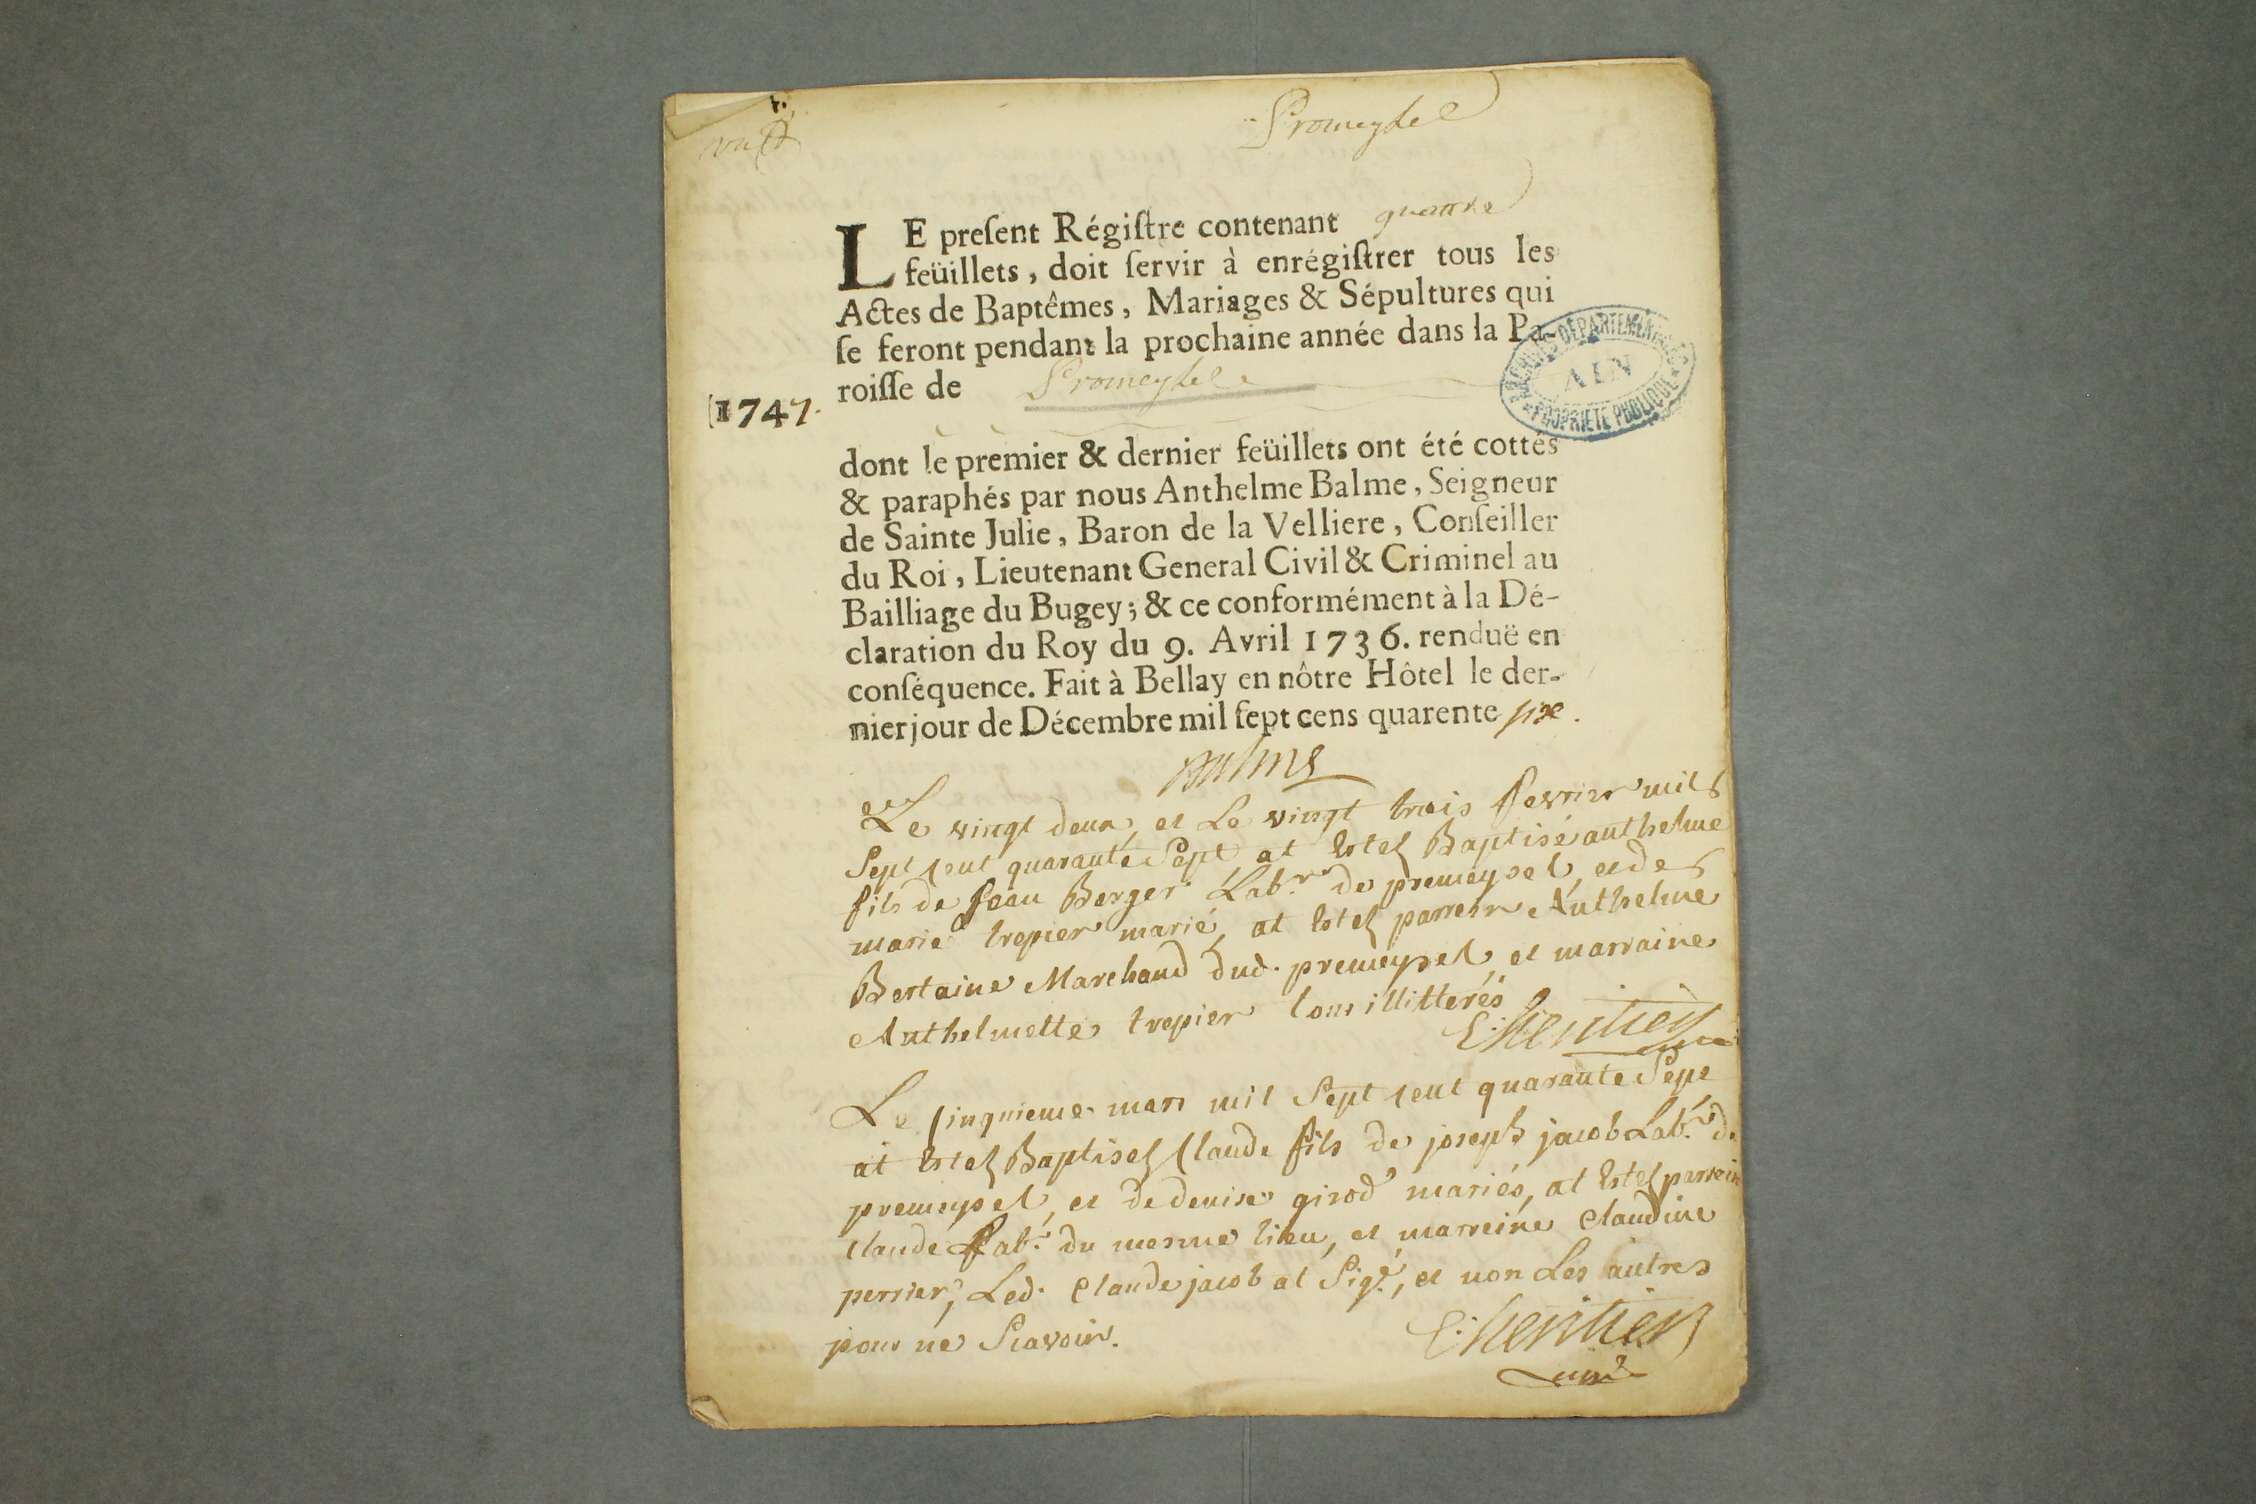 Promeyzel
LE preſent Régiſtre contenant quattre
feüillets, doit ſervir à enrégiſtrer tous les
Actes de Baptêmes, Mariages & Sépultures qui
ſe feront pendant la prochaine année dans la Pa-
roiſſe de Promeyzel
1747.
ARCHIVES DEPARTEMENTALES
AIN
PROPRIETE PUBLIQUE
dont le premier & dernier feüillets ont été cottés
& paraphés par nous Anthelme Balme, Seigneur
de Sainte Julie, Baron de la Velliere, Conſeiller
du Roi, Lieutenant General Civil & Criminel au
Bailliage du Bugey; & ce conformément à la Dé-
claration du Roy du 9. Avril 1736. renduë en
conſéquence. Fait à Bellay en nôtre Hôtel le der-
nier jour de Décembre mil ſept cens quarente six.
Balme
Le vingt deux, et Le vingt trois fevrier mil
Sept cent quarante Sept at Estez Baptisé anthelme
fils de Jean Berger Lab.r de premeysel, et de
marie trepier marié, at Estez parrein Anthelme
Bertaine Marchand dud. premeysel, et marraine
Anthelmette trepier tous illitterés
Le cinquieme mars mil Sept cent quarante Sept
at Estez Baptisez Claude fils de joseph jacob Lab.r de
premeysel, et de denise girod mariés, at Estez parrein
Claude Lab.r du mesme lieu, et marreine Claudine
perrier, Led. Claude jacob at Sig.é, et non Les autres
pour ne Scavoir.